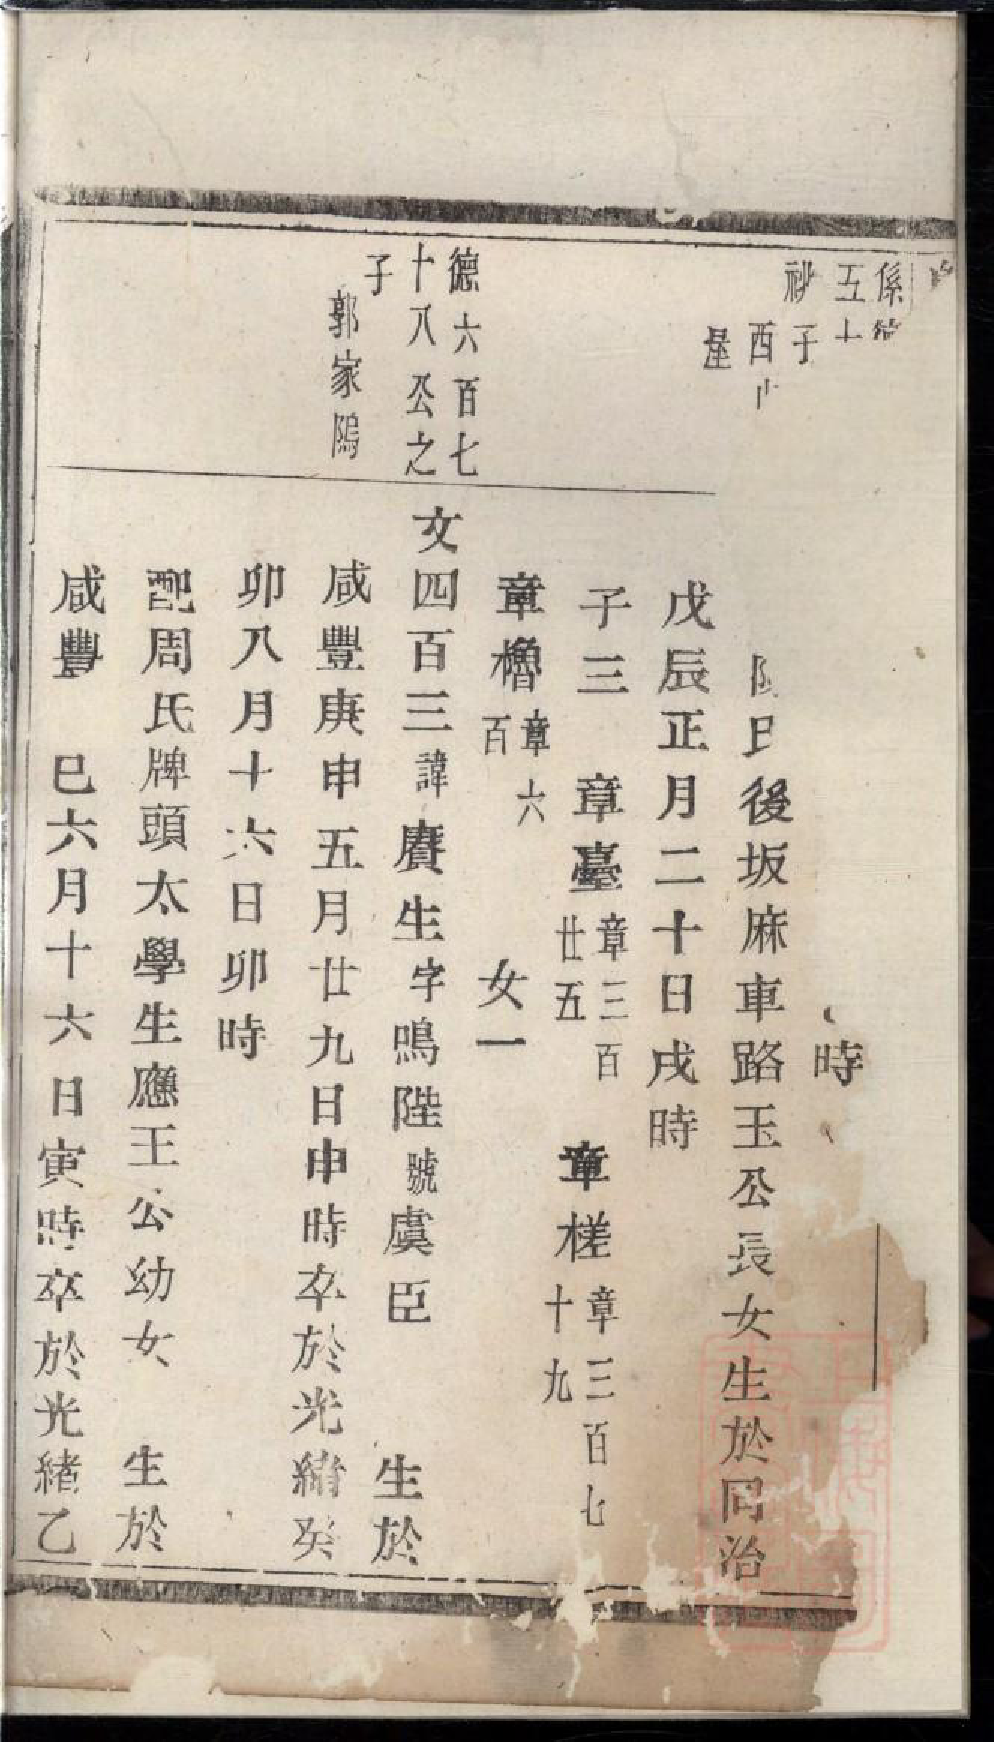 係
五十
祕子
西
壟
時
日後坂麻車路玉公長女生於同治
戊辰正月二十日戌時
子三 章臺章三百廿五 章槎章三百七十九
章櫓章六百 女一
德六百七
十八公之
子
郭家隖
文四百三諱賡生字鳴陛號虞臣 生於
咸豐庚申五月廿九日申時卒於光緒癸
卯八月十六日卯時
配周氏牌頭太學生應王公幼女 生於
咸豐 巳六月十六日寅時卒於光緒乙